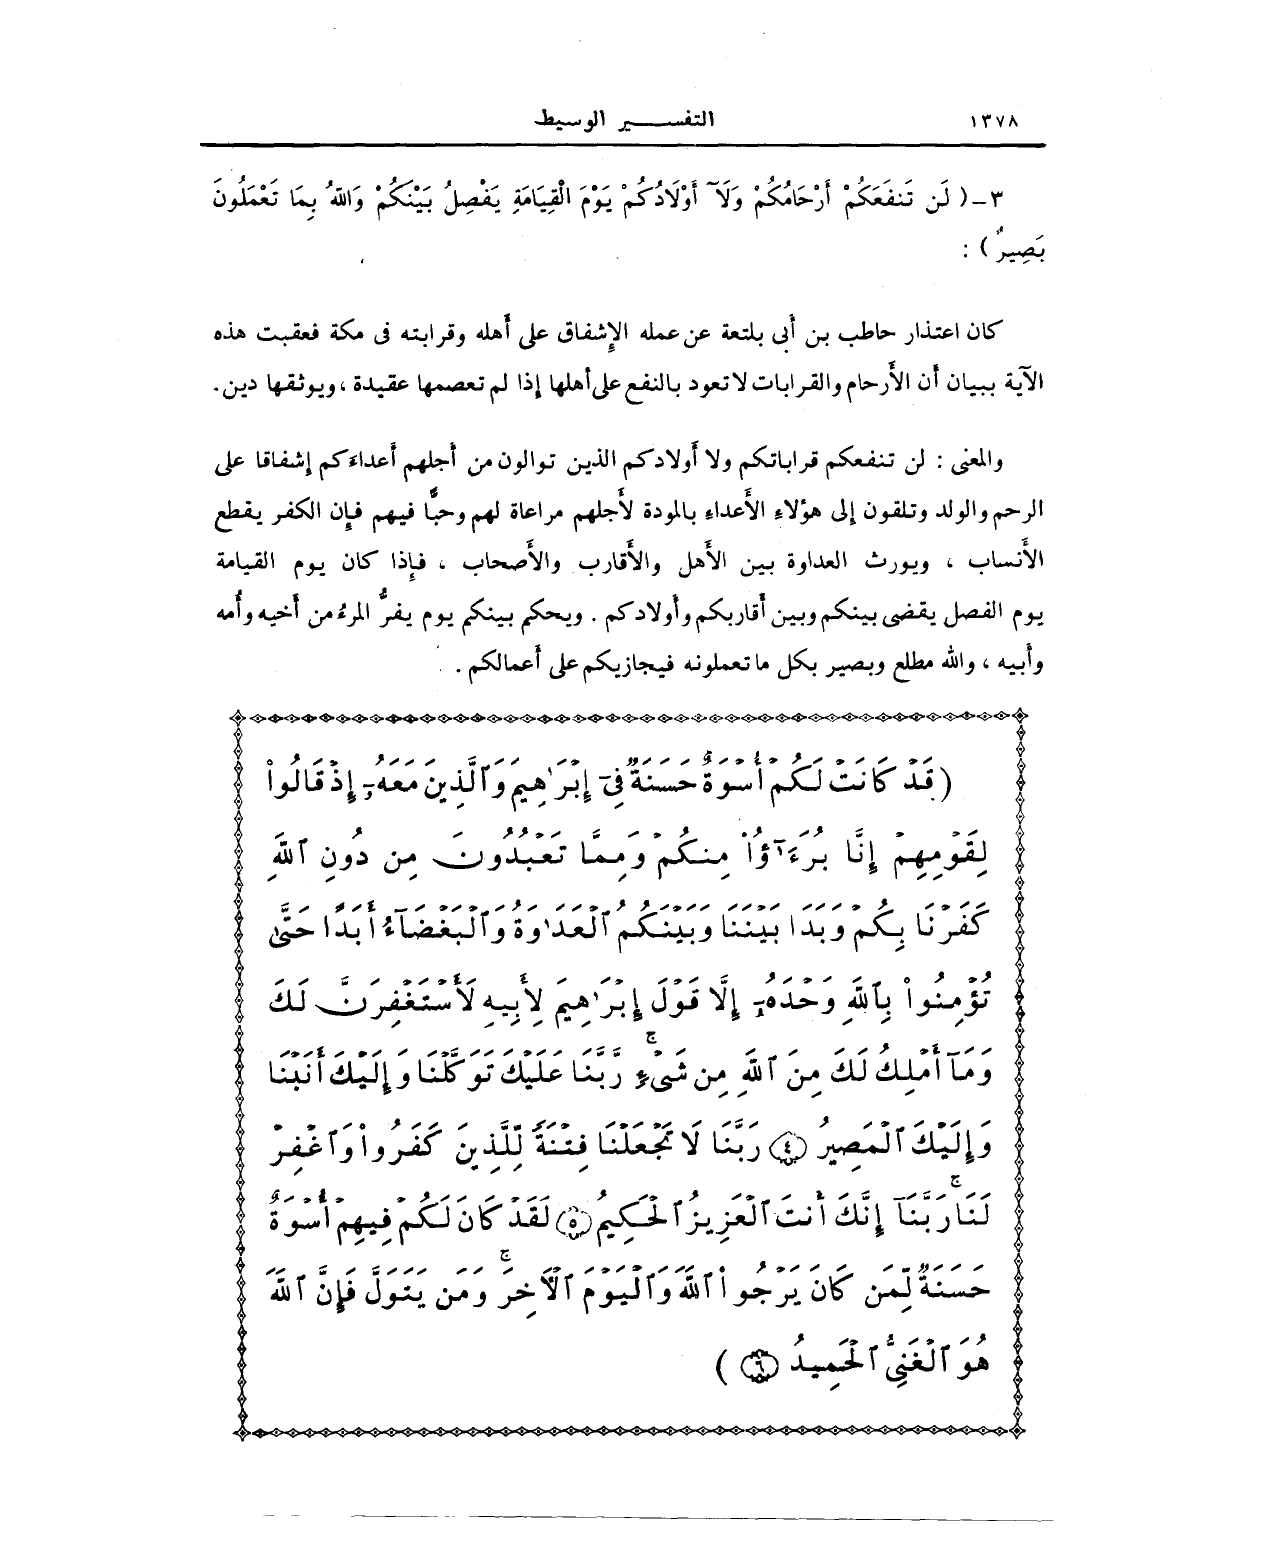 ١٣٧٨
التفسير الوسيط
٣ـ ( لَن تَنفَعَكُمْ أَرْحَامُكُمْ وَلَآ أَوْلَادُكُمْ يَوْمَ الْقِيَامَةِ يَفْصِلُ بَيْنَكُمْ وَاللهُ بِمَا تَعْمَلُونَ
بَصِيرٌ ) :
كان اعتذار حاطب بن أَبى بلتعة عن عمله الإِشفاق على أَهله وقرابته فى مكة فعقبت هذه
الآية ببيان أَن الأَرحام والقرابات لا تعود بالنفع على أهلها إِذا لم تعصمها عقيدة ، ويوثقها دين .
والمعنى : لن تنفعكم قراباتكم ولا أَولادكم الذين توالون من أَجلهم أَعداءَكم إِشفاقا على
الرحم والولد وتلقون إِلى هؤلاءِ الأَعداءِ بالمودة لأَجلهم مراعاة لهم وحبًّا فيهم فإِن الكفر يقطع
الأَنساب ، ويورث العداوة بين الأَهل والأَقارب والأَصحاب ، فإِذا كان يوم القيامة
يوم الفصل يقضى بينكم وبين أَقاربكم وأَولادكم . ويحكم بينكم يوم يفرُّ المرءُ من أَخيه وأُمه
وأَبيه ، والله مطلع وبصير بكل ما تعملونه فيجازيكم على أَعمالكم .
( قَدْ كَانَتْ لَكُمْ أُسْوَةٌ حَسَنَةٌ فِىٓ إِبْرَٰهِيمَ وَٱلَّذِينَ مَعَهُۥٓ إِذْ قَالُوا۟
لِقَوْمِهِمْ إِنَّا بُرَءَٰٓؤُا۟ مِنكُمْ وَمِمَّا تَعْبُدُونَ مِن دُونِ ٱللَّهِ
كَفَرْنَا بِكُمْ وَبَدَا بَيْنَنَا وَبَيْنَكُمُ ٱلْعَدَٰوَةُ وَٱلْبَغْضَآءُ أَبَدًا حَتَّىٰ
تُؤْمِنُوا۟ بِٱللَّهِ وَحْدَهُۥٓ إِلَّا قَوْلَ إِبْرَٰهِيمَ لِأَبِيهِ لَأَسْتَغْفِرَنَّ لَكَ
وَمَآ أَمْلِكُ لَكَ مِنَ ٱللَّهِ مِن شَىْءٍ ۖ رَّبَّنَا عَلَيْكَ تَوَكَّلْنَا وَإِلَيْكَ أَنَبْنَا
وَإِلَيْكَ ٱلْمَصِيرُ ﴿٤﴾ رَبَّنَا لَا تَجْعَلْنَا فِتْنَةً لِّلَّذِينَ كَفَرُوا۟ وَٱغْفِرْ
لَنَا رَبَّنَآ ۖ إِنَّكَ أَنتَ ٱلْعَزِيزُ ٱلْحَكِيمُ ﴿٥﴾ لَقَدْ كَانَ لَكُمْ فِيهِمْ أُسْوَةٌ
حَسَنَةٌ لِّمَن كَانَ يَرْجُوا۟ ٱللَّهَ وَٱلْيَوْمَ ٱلْءَاخِرَ ۚ وَمَن يَتَوَلَّ فَإِنَّ ٱللَّهَ
هُوَ ٱلْغَنِىُّ ٱلْحَمِيدُ ﴿٦﴾ )